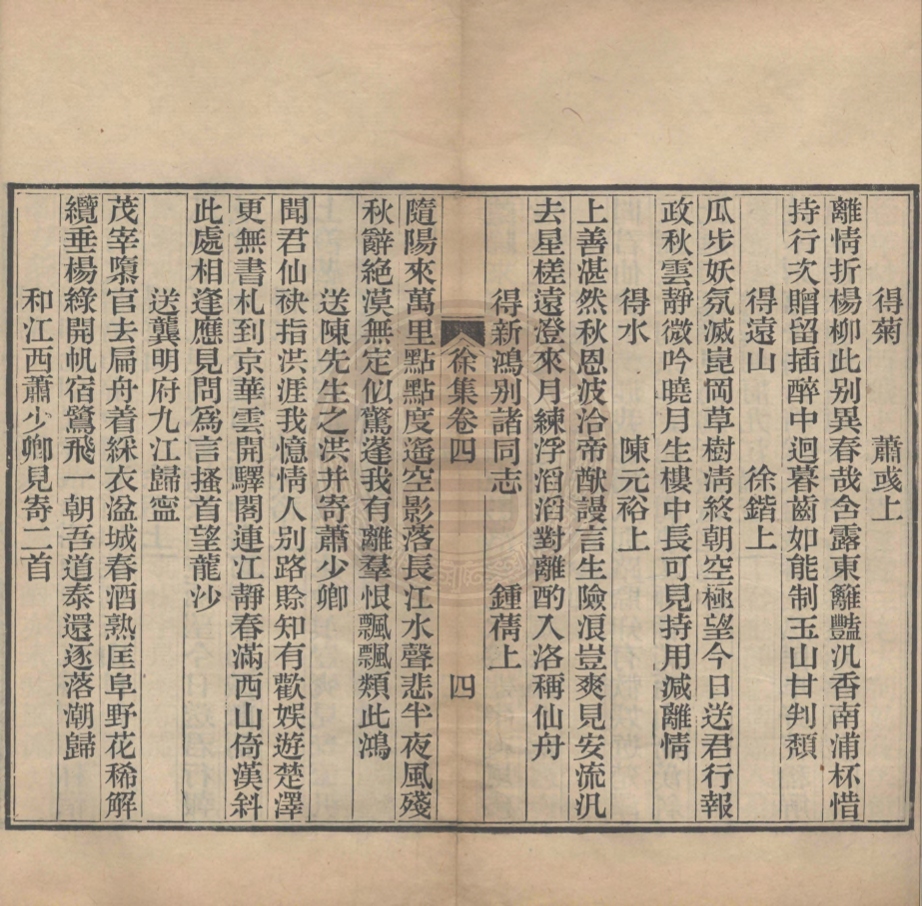 得菊　蕭彧上
離情折楊柳此别異春哉含露東籬豔汎香南浦杯惜
持行次贈留插醉中迴暮齒如能制玉山甘判頹
得遠山　徐鍇上
瓜步妖氛滅崑岡草樹淸終朝空極望今日送君行報
政秋雲靜微吟曉月生樓中長可見持用減離情
得水　陳元裕上
上善湛然秋恩波洽帝猷謾言生險浪豈爽見安流汎
去星槎遠澄來月練浮滔滔對離酌入洛稱仙舟
得新鴻别諸同志　鍾蒨上
隨陽來萬里點點度遙空影落長江水聲悲半夜風殘
秋辭絶漠無定似驚蓬我有離羣恨飄飄類此鴻
送陳先生之洪井寄蕭少卿
聞君仙袂指洪涯我憶情人别路賖知有歡娛遊楚澤
更無書札到京華雲開驛閣連江靜春滿西山倚漢斜
此處相逢應見問爲言搔首望龍沙
送龔明府九江歸寍
茂宰隳官去扁舟着綵衣湓城春酒熟匡阜野花稀解
纜垂楊綠開帆宿鷺飛一朝吾道泰還逐落潮歸
和江西蕭少卿見寄二首
徐集卷四　四